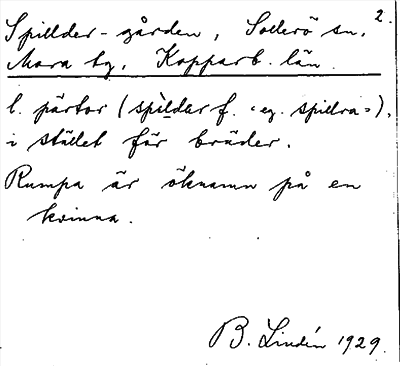 2.
Spillder-gården, Sollerö sn,
Mora tg, Kopparb. län
l. pärtor (spìldar f. "eg. spillra"),
i stället för bräder.
Rumpa är öknamn på en
kvinna.
B. Lindén 1929.